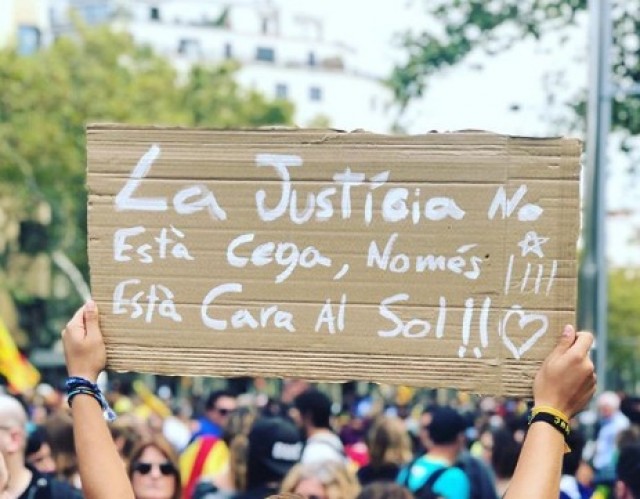 La Justícia No
Està Cega, Només
Està Cara Al Sol!!